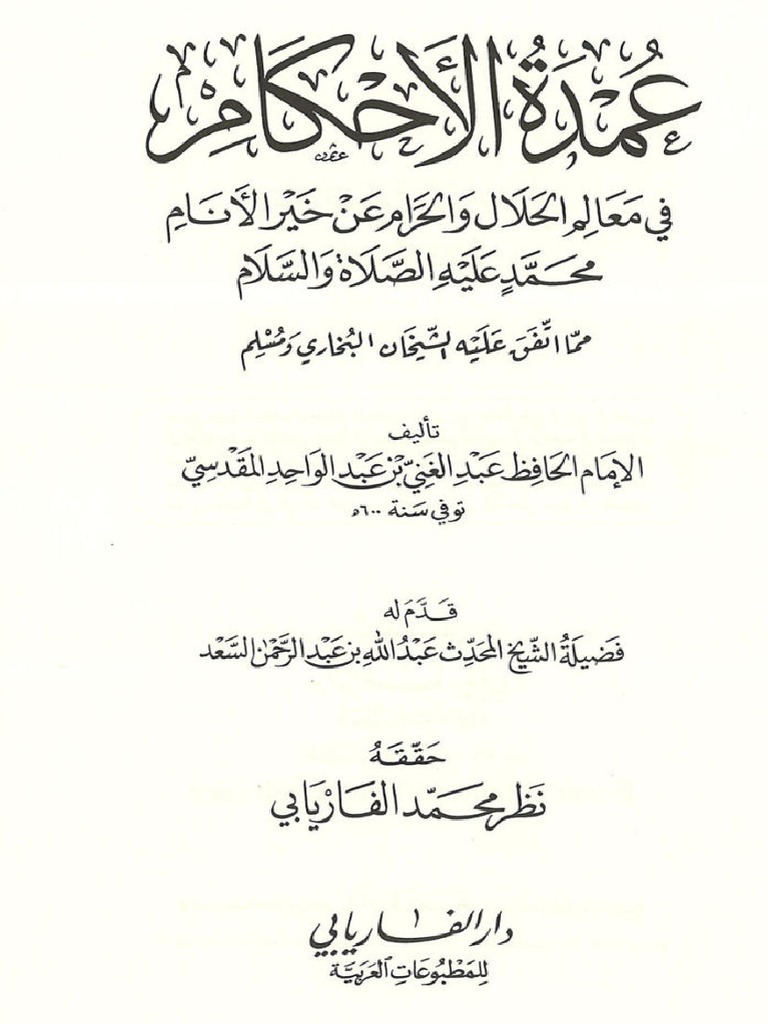 عُمْدَةُ الأَحْكَامِ
في مَعَالِمِ الحَلَالِ وَالحَرَامِ عَنْ خَيْرِ الأَنَامِ
محمَّدٍ عَلَيْهِ الصَّلَاةُ وَالسَّلَامُ
ممّا اتّفَقَ عَلَيْه الشّيخَان البُخَاري وَمُسْلِم
تأليف
الإمَام الحَافِظ عَبْدِ الغَنيِّ بْن عَبْد الوَاحِدِ المَقْدسِيِّ
توفي سَنة ٦٠٠ه
قَدَّمَ له
فَضيلَةُ الشّيخ المحَدِّث عَبْدُ اللهِ بن عَبْد الرَّحْمٰن السَّعْد
حَقّقَهُ
نَظَر محَمَّد الفَاريَابي
دار الفاريابي
للمَطْبُوعَاتِ العَرَبيَّة